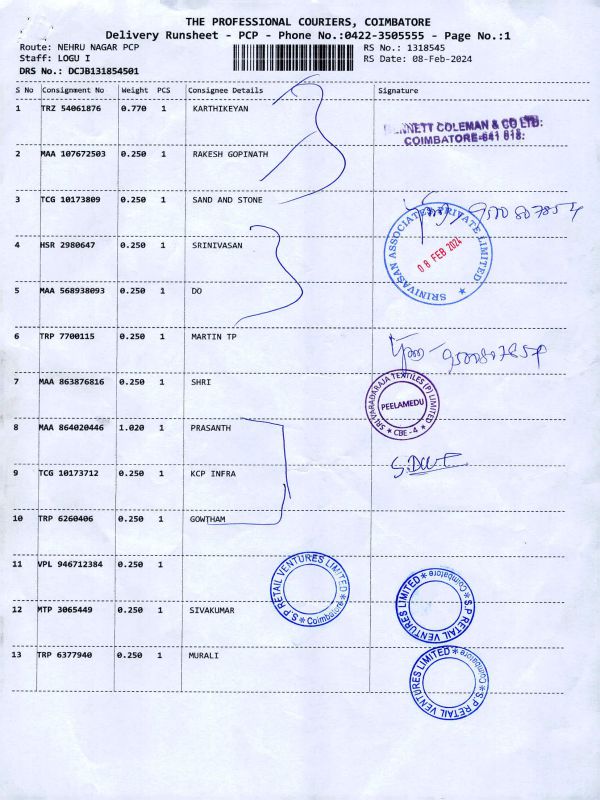 THE PROFESSIONAL COURIERS, COIMBATORE
Delivery Runsheet - PCP - Phone No.:0422-3505555 - Page No.:1
Route: NEHRU NAGAR PCP RS No.: 1318545
Staff: LOGU I RS Date: 08-Feb-2024
DRS No.: DCJB131854501
S No Consignment No Weight PCS Consignee Details Signature
1 TRZ 54061876 0.770 1 KARTHIKEYAN
BENNETT COLEMAN & CO LTD:
COIMBATORE-641 018:
2 MAA 107672503 0.250 1 RAKESH GOPINATH
3 TCG 10173809 0.250 1 SAND AND STONE
9500807854
SRINIVASAN ASSOCIATES PRIVATE LIMITED ★
08 FEB 2024
4 HSR 2980647 0.250 1 SRINIVASAN
5 MAA 568938093 0.250 1 DO
6 TRP 7700115 0.250 1 MARTIN TP
7 MAA 863876816 0.250 1 SHRI
SRI VARADARAJA TEXTILES (P) LIMITED
PEELAMEDU
★ CBE - 4 ★
8 MAA 864020446 1.020 1 PRASANTH
9 TCG 10173712 0.250 1 KCP INFRA
10 TRP 6260406 0.250 1 GOWTHAM
11 VPL 946712384 0.250 1
S.P RETAIL VENTURES LIMITED ★ Coimbatore ★
S.P RETAIL VENTURES LIMITED ★ Coimbatore ★
12 MTP 3065449 0.250 1 SIVAKUMAR
13 TRP 6377940 0.250 1 MURALI
S.P RETAIL VENTURES LIMITED ★ Coimbatore ★